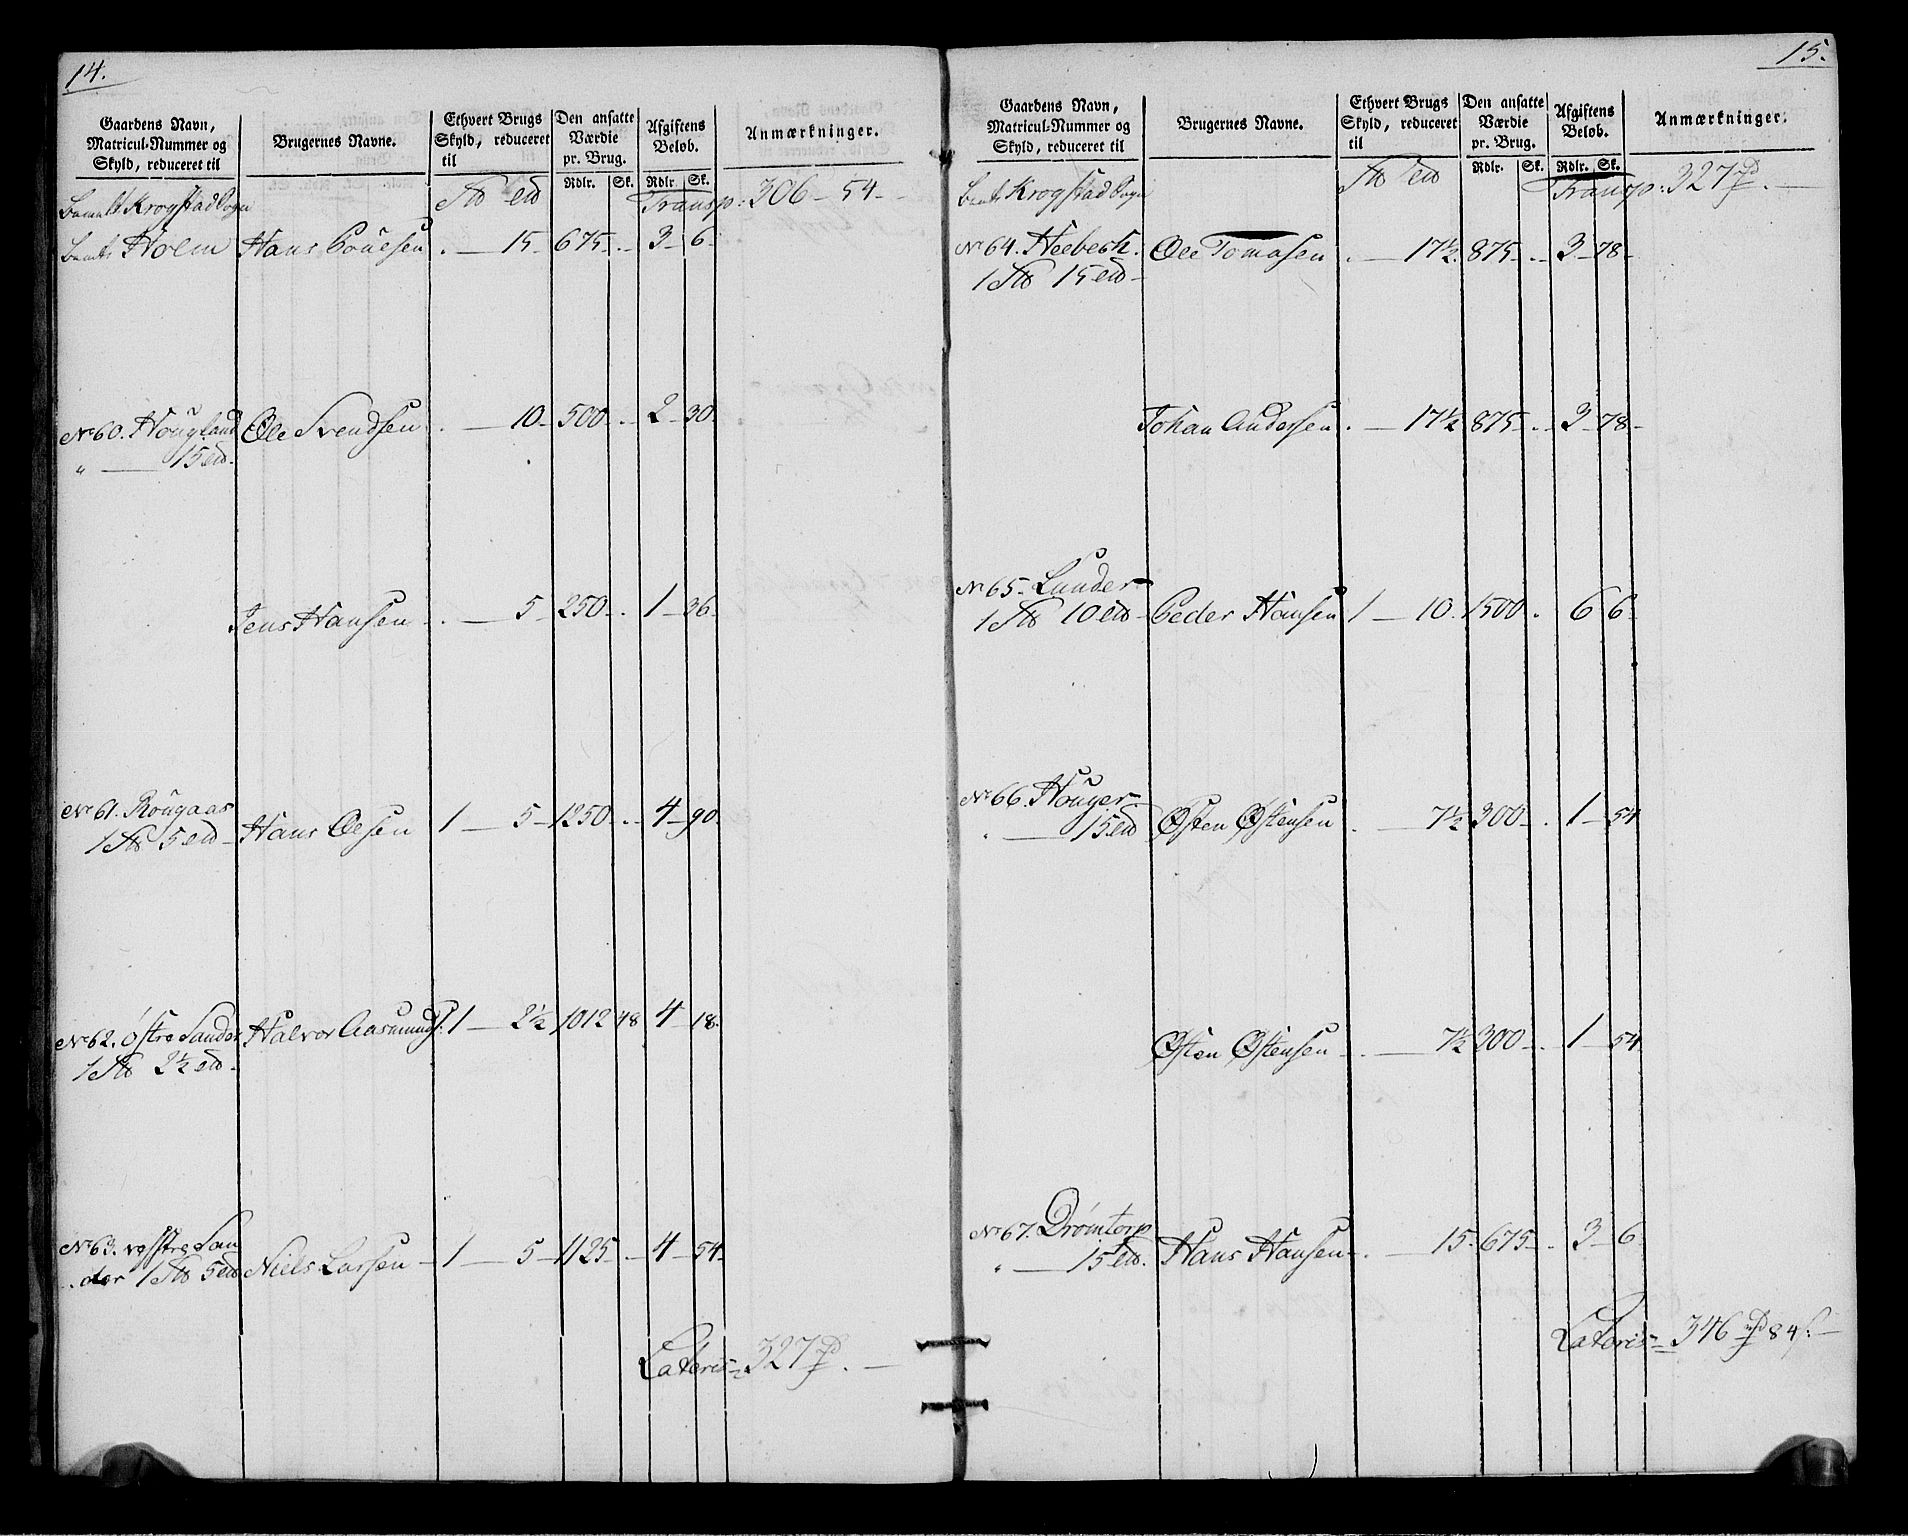 14.
Gaardens Navn, Matricul-Nummer og Skyld, reduceret til | Brugernes Navne. | Ethvert Brugs Skyld, reduceret til | Den ansatte Værdie pr. Brug. Rdlr. Sk. | Afgiftens Beløb. Rdlr. Sk. | Anmærkninger.
Krogstad Sogn Transp: 306 - 54 -
Holm Hans Poulsen . — 15 - 675 - . 3 - 6 -
No 60. Hougland Ole Svendsen . — 10 - 500 - . 2 - 30 -
" — 15
Jens Hansen . — 5 - 250 - . 1 - 36 -
No 61. Rougaas
1 5 - Hans Olsen 1 — 5 - 1250 - . 4 - 90
No 62. Østre Sander Halvor Aasmunds: 1 — 2½ 1012 48 4 - 18
1 2½
No 63. vestre San
der 1 5 Niels Larsen - 1 — 5 - 1125 - 4 - 54 -
Lateris = 327 . —
15.
Gaardens Navn, Matricul-Nummer og Skyld, reduceret til | Brugernes Navne. | Ethvert Brugs Skyld, reduceret til | Den ansatte Værdie pr. Brug. Rdlr. Sk. | Afgiftens Beløb. Rdlr. Sk. | Anmærkninger.
Krogstad Sogn Transp: 327 . —
No 64. Heebech. Ole Tomasen . — 17½ 875 - . 3 - 78 -
1 15 -
Johan Andersen . — 17½ 875 - . 3 - 78 -
No 65 - Lunder -
1 10 - Peder Hansen 1 — 10 . 1500 . 6 6 -
No 66. Houger -
" — 15 Østen Østensen . — 7½ 300 - . 1 - 54
Østen Østensen - . — 7½ 300 - . 1 - 54
No 67. Drömtorp
" — 15 . Hans Hansen - . — 15 - 675 - . 3 - 6
Lateris = 346 84 ſ. —